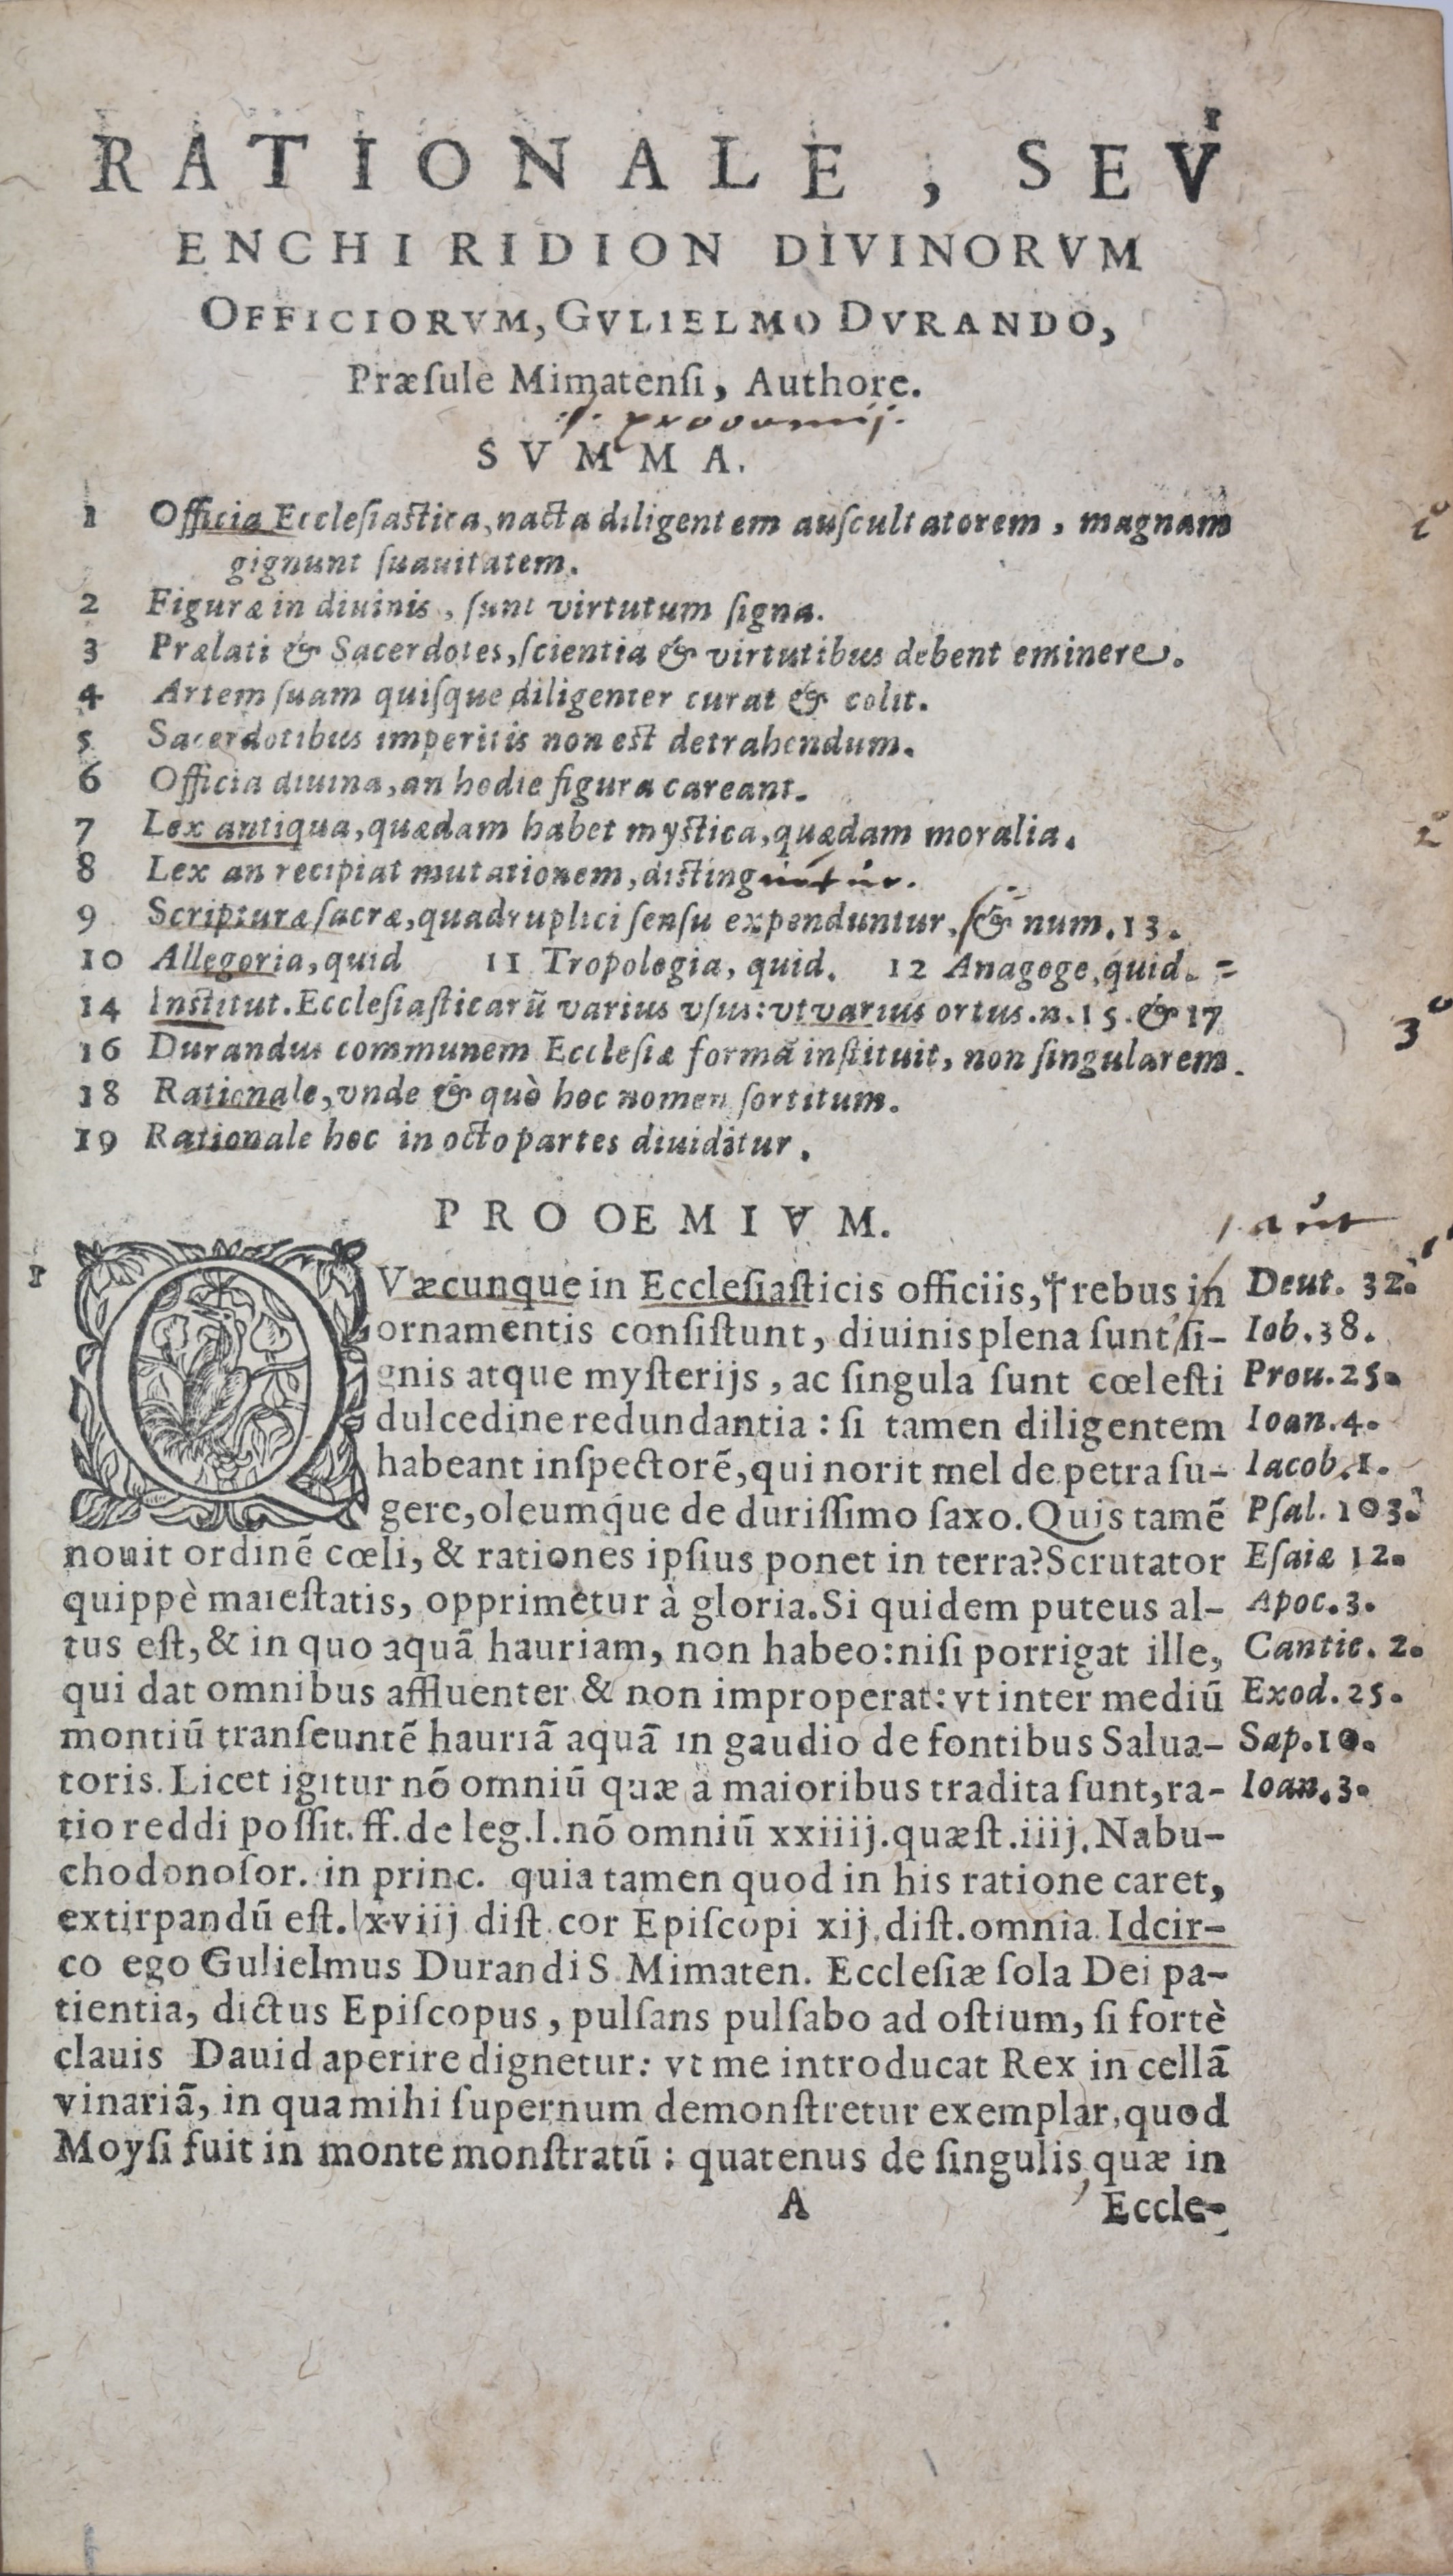 1
RATIONALE, SEV
ENCHIRIDION DIVINORVM
OFFICIORVM, GVLIELMO DVRANDO,
Præſule Mimatenſi, Authore.
prooemij.
SVMMA.
1 Officia Eccleſiaſtica, nacta diligentem auſcultatorem, magnam
gignunt ſuauitatem.
2 Figuræ in diuinis, ſunt virtutum ſigna.
3 Prælati & Sacerdotes, ſcientia & virtutibus debent eminere.
4 Artem ſuam quiſque diligenter curat & colit.
5 Sacerdotibus imperitis non eſt detrahendum.
6 Officia diuina, an hodie figura careant.
7 Lex antiqua, quædam habet myſtica, quædam moralia.
8 Lex an recipiat mutationem, diſtinguitur.
9 Scripturæ ſacræ, quadruplici ſenſu expenduntur, & num. 13.
10 Allegoria, quid 11 Tropologia, quid. 12 Anagoge, quid.
14 Inſtitut. Eccleſiaſticarū varius vſus: vt varius ortus. n. 15. & 17
16 Durandus communem Eccleſiæ formā inſtituit, non ſingularem.
18 Rationale, vnde & quò hoc nomen ſortitum.
19 Rationale hoc in octo partes diuiditur.
2º
3º
PROOEMIVM.
aut
1 QVæcunque in Eccleſiaſticis officiis, † rebus in
ornamentis conſiſtunt, diuinis plena ſunt ſi-
gnis atque myſterijs, ac ſingula ſunt cœleſti
dulcedine redundantia: ſi tamen diligentem
habeant inſpectorē, qui norit mel de petra ſu-
gere, oleumq́ue de duriſſimo ſaxo. Quis tamē
nouit ordinē cœli, & rationes ipſius ponet in terra? Scrutator
quippè maieſtatis, opprimetur à gloria. Si quidem puteus al-
tus eſt, & in quo aquā hauriam, non habeo: niſi porrigat ille,
qui dat omnibus affluenter & non improperat: vt inter mediū
montiū tranſeuntē hauriā aquā in gaudio de fontibus Salua-
toris. Licet igitur nō omniū quæ à maioribus tradita ſunt, ra-
tio reddi poſſit. ff. de leg. l. nō omniū xxiiij. quæſt. iiij. Nabu-
chodonoſor. in princ. quia tamen quod in his ratione caret,
extirpandū eſt. lxviij diſt. cor Epiſcopi xij. diſt. omnia. Idcir-
co ego Gulielmus Durandi S. Mimaten. Eccleſiæ ſola Dei pa-
tientia, dictus Epiſcopus, pulſans pulſabo ad oſtium, ſi fortè
clauis Dauid aperire dignetur: vt me introducat Rex in cellā
vinariā, in qua mihi ſupernum demonſtretur exemplar, quod
Moyſi fuit in monte monſtratū: quatenus de ſingulis, quæ in
A Eccle-
Deut. 32.
Iob. 38.
Prou. 25.
Ioan. 4.
Iacob. 1.
Pſal. 103.
Eſaiæ 12.
Apoc. 3.
Cantic. 2.
Exod. 25.
Sap. 10.
Ioan. 3.